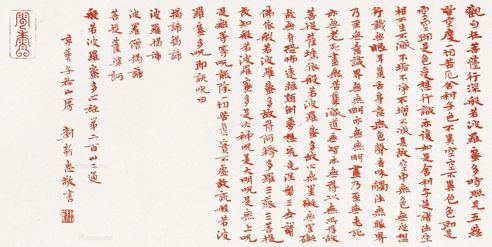 觀自在菩薩行深般若波羅蜜多時照見五蘊
皆空度一切苦厄舍利子色不異空空不異色色即是
空空即是色受想行識亦復如是舍利子是諸法空
相不生不滅不垢不淨不增不減是故空中無色無受想
行識無眼耳鼻舌身意無色聲香味觸法無眼界
乃至無意識界無無明亦無無明盡乃至無老死
亦無老死盡無苦集滅道無智亦無得以無所得故
菩提薩埵依般若波羅蜜多故心無罣礙無罣礙
故無有恐怖遠離顛倒夢想究竟涅槃三世諸
佛依般若波羅蜜多故得阿耨多羅三藐三菩提
故知般若波羅蜜多是大神咒是大明咒是無上咒
是無等等咒能除一切苦真實不虛故說般若波
羅蜜多咒即說咒曰
揭諦揭諦
波羅揭諦
波羅僧揭諦
菩提薩婆訶
般若波羅蜜多心經 第二百廿二通
京華子 山房 劉新惠敬書